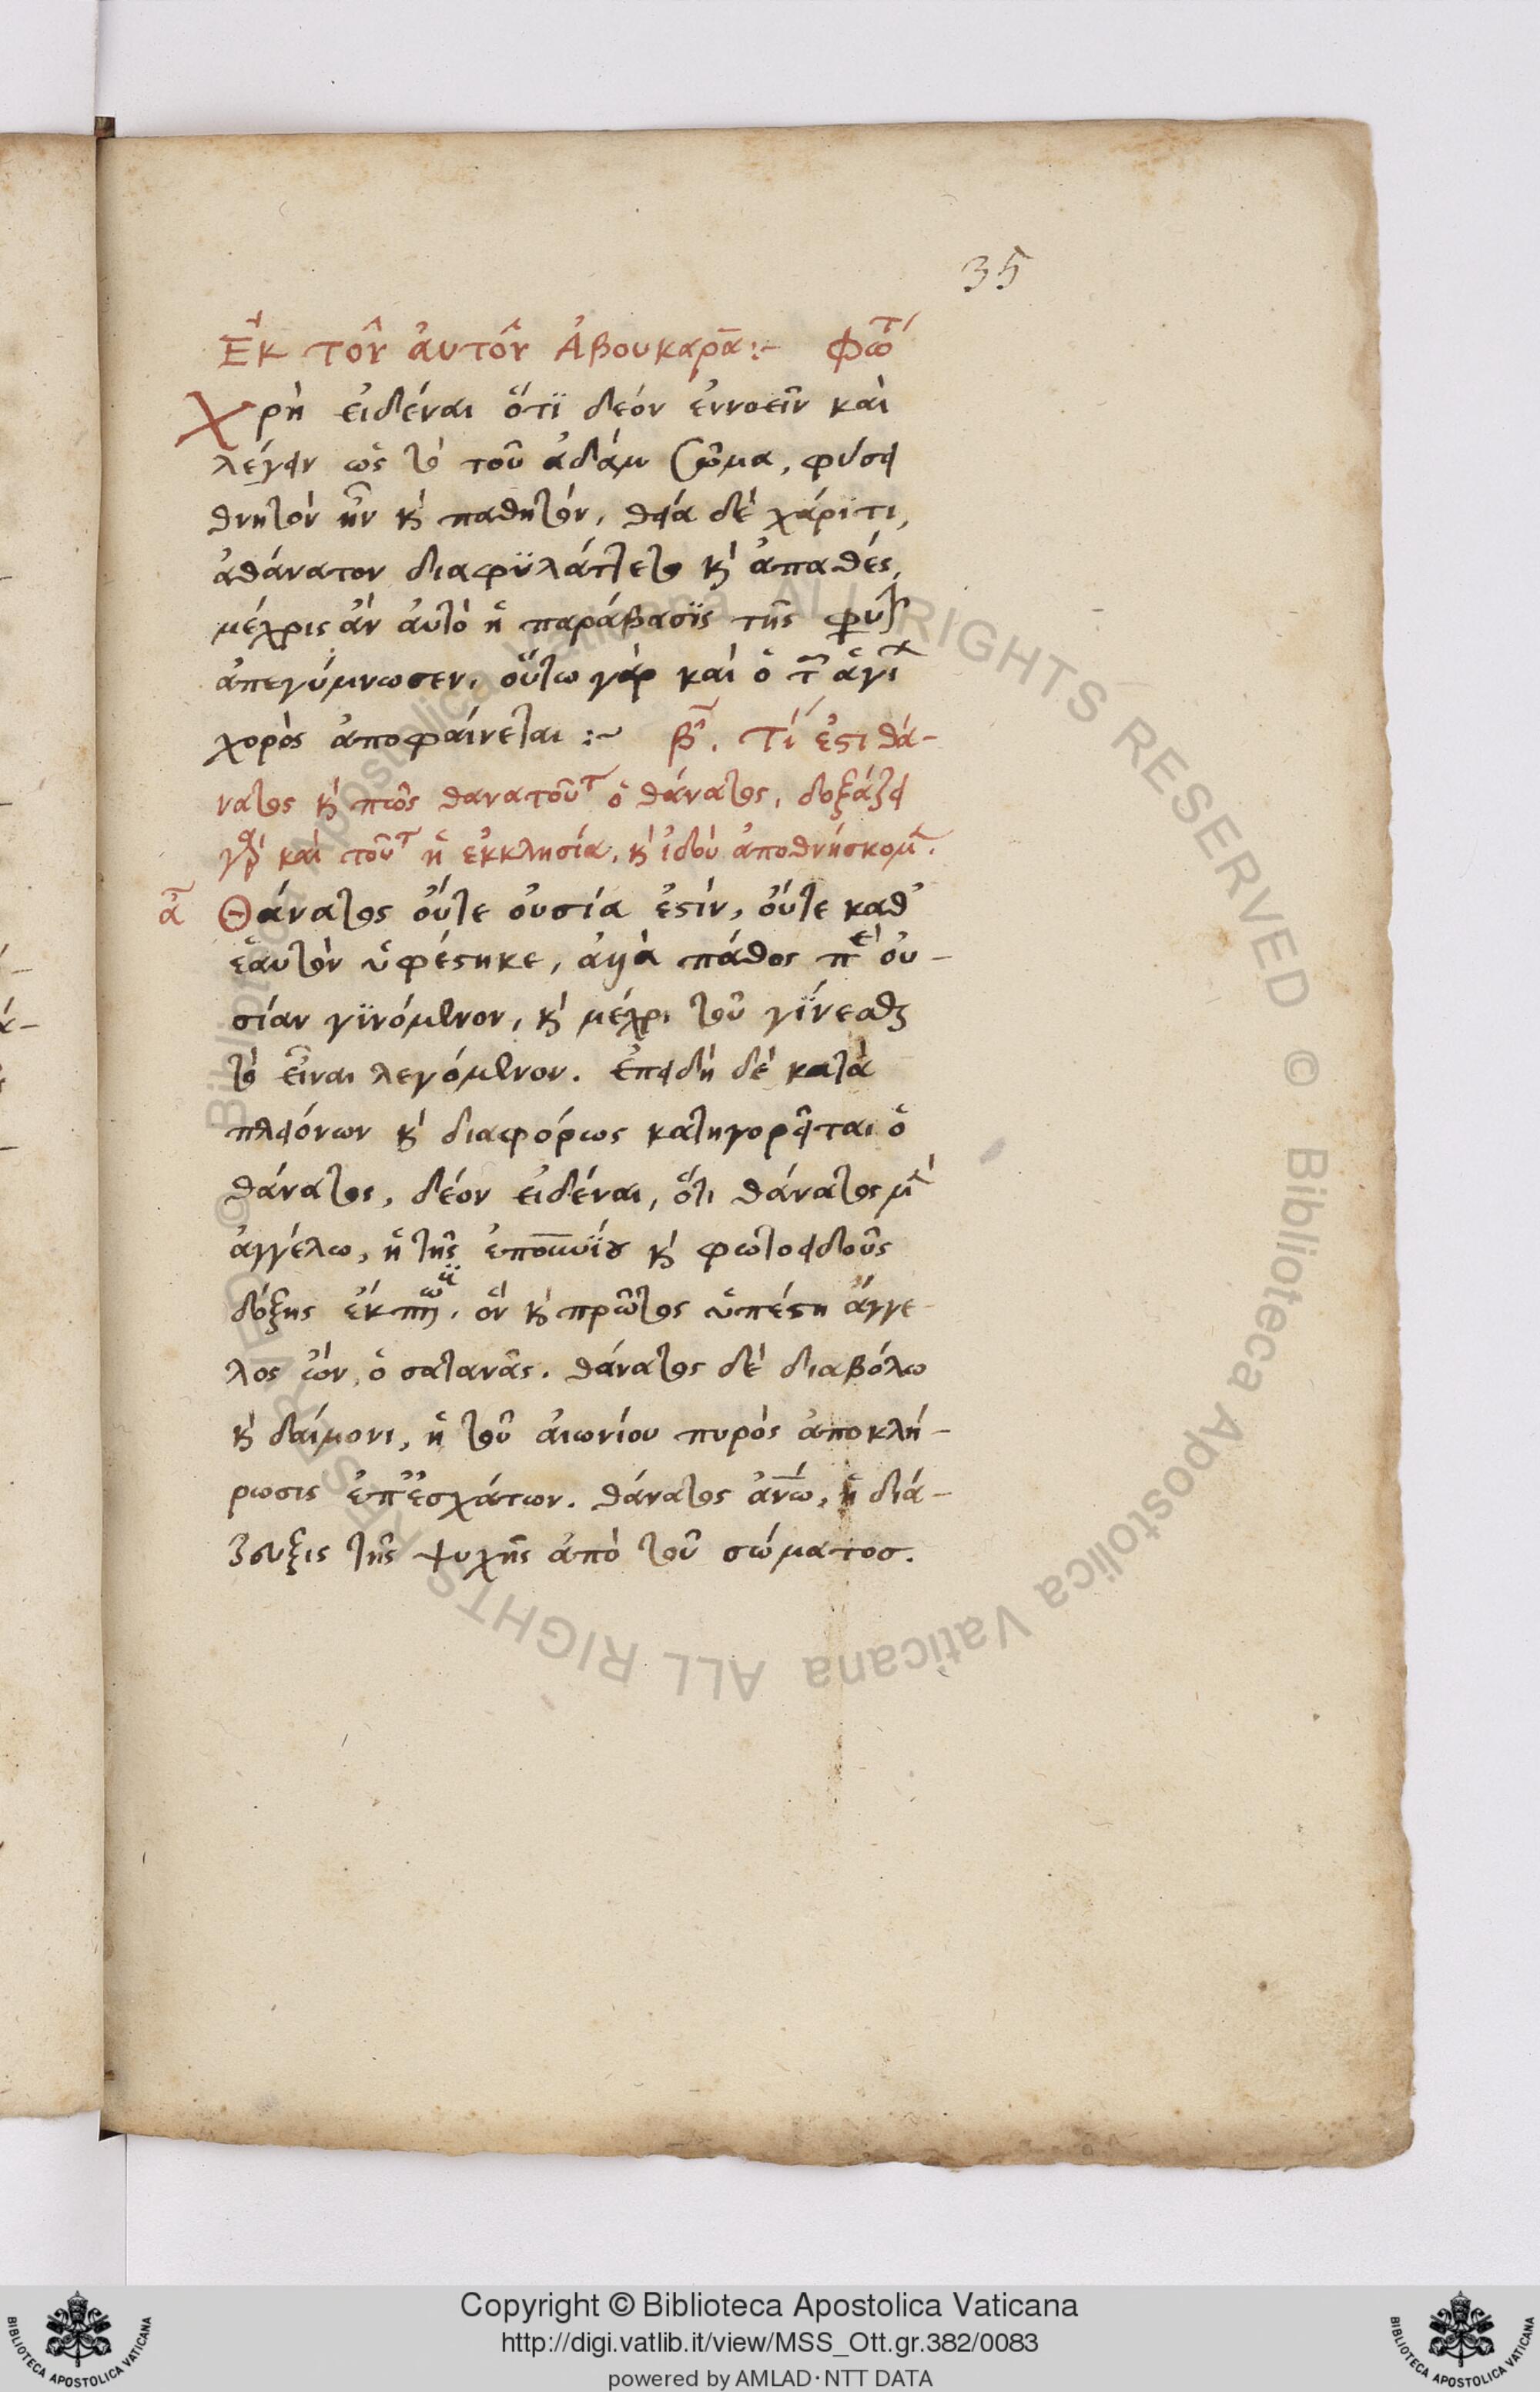 35
Ἐκ τοῦ ἀυτοῦ Ἀβουκαρᾶ :~ Φωτ
Χρὴ εἰδέναι ὅτϊ δεόν ἐννοεῖν καὶ
λέγειν ὡς τὸ τοῦ ἀδὰμ σῶμα, φύσει
θνητὸν ἦν κ παθητόν, θεία δὲ χάριτι,
ἀθάνατον διαφϋλάττετο κ ἀπαθές,
μέχρις ἂν ἀυτὸ ἡ παράβασϊς τῆς
ἀπεγύμνωσεν, οὕτω γὰρ καὶ ὁ τ ἁγί
χορὸς ἀποφαίνεται :~ β. Τί ἐστι θά-
νατος κ πῶς θανατοῦτ ὁ θάνατος, δοξάζει
γὰρ καὶ τοῦτ ἡ ἐκκλησία, κ ἰδοὺ ἀποθνήσκομ.
ἀ Θάνατος οὔτε οὐσία ἐστίν, οὔτε καθ'
ἑαυτὸν ὑφέστηκε, ἀλλὰ πάθος πε οὐ-
σίαν γϊνόμενον, κ μέχρι τοῦ γΐνεσθαι
τὸ εἶναι λεγόμενον. ἐπειδὴ δὲ κατὰ
πλειόνων κ διαφόρως κατηγορεῖται ὁ
θάνατος, δέον εἰδέναι, ὅτι θάνατος μ
ἀγγέλω, ἡ τῆς ἐπουνίου κ φωτοειδοῦς
δόξης ἐκπτω. ὃν κ πρῶτος ὑπέστη ἄγγε
λος ὢν, ὁ σατανᾶς. θάνατος δὲ διαβόλω
κ δαίμονι, ἡ τοῦ αἰωνίου πυρὸς ἀποκλή-
ρωσις ἐπ' ἐσχάτων. θάνατος ἀνω, ἡ διά-
ζευξις τῆς ψυχῆς ἀπὸ τοῦ σώματος.
Copyright © Biblioteca Apostolica Vaticana
http://digi.vatlib.it/view/MSS_Ott.gr.382/0083
powered by AMLAD·NTT DATA
BIBLIOTECA APOSTOLICA VATICANA
BIBLIOTECA APOSTOLICA VATICANA
© Biblioteca Apostolica Vaticana ALL RIGHTS RESERVED
© Biblioteca Apostolica Vaticana ALL RIGHTS RESERVED